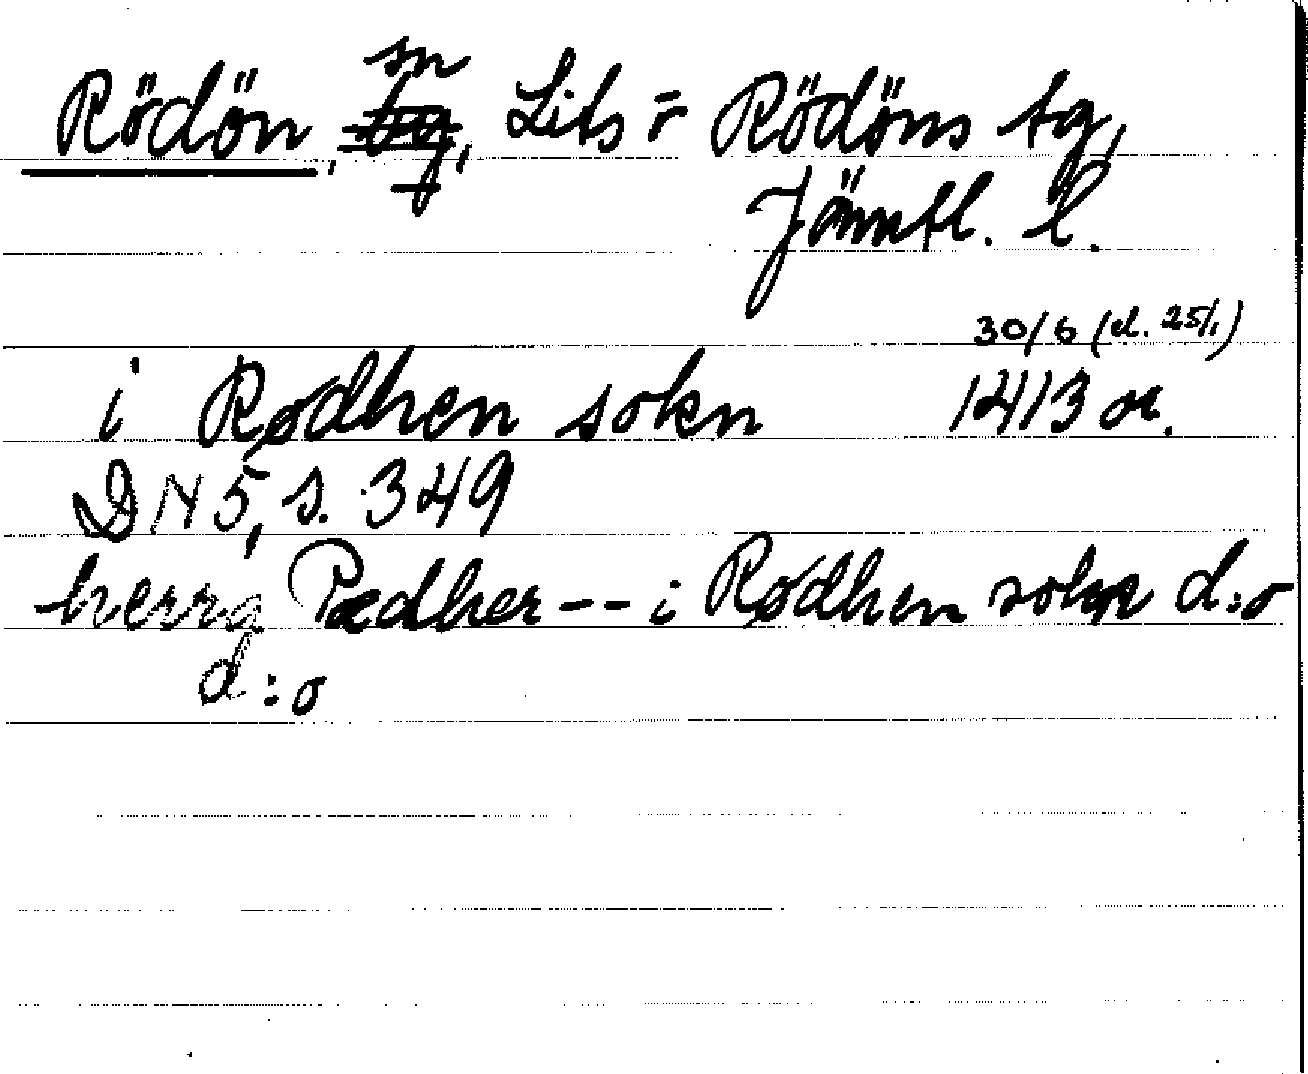 Rödön, sn, Lits o Rödöns tg,
Jämtl. l.
30/6 (el. 25/1)
i Rødhen sokn 1413 or.
DN 5, s. 349
herra Pædher -- i Rødhen sokn d:o
d:o